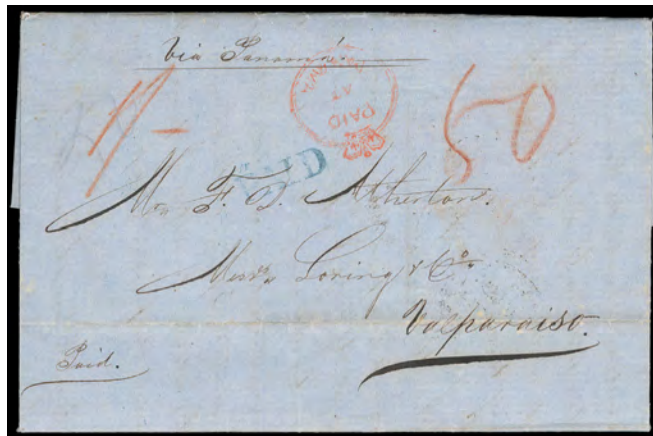 Via Panamá.
1/-
50
PAID
PAID
Mr F. D. Atherton.
Loring & Co.
Valparaiso.
Paid.